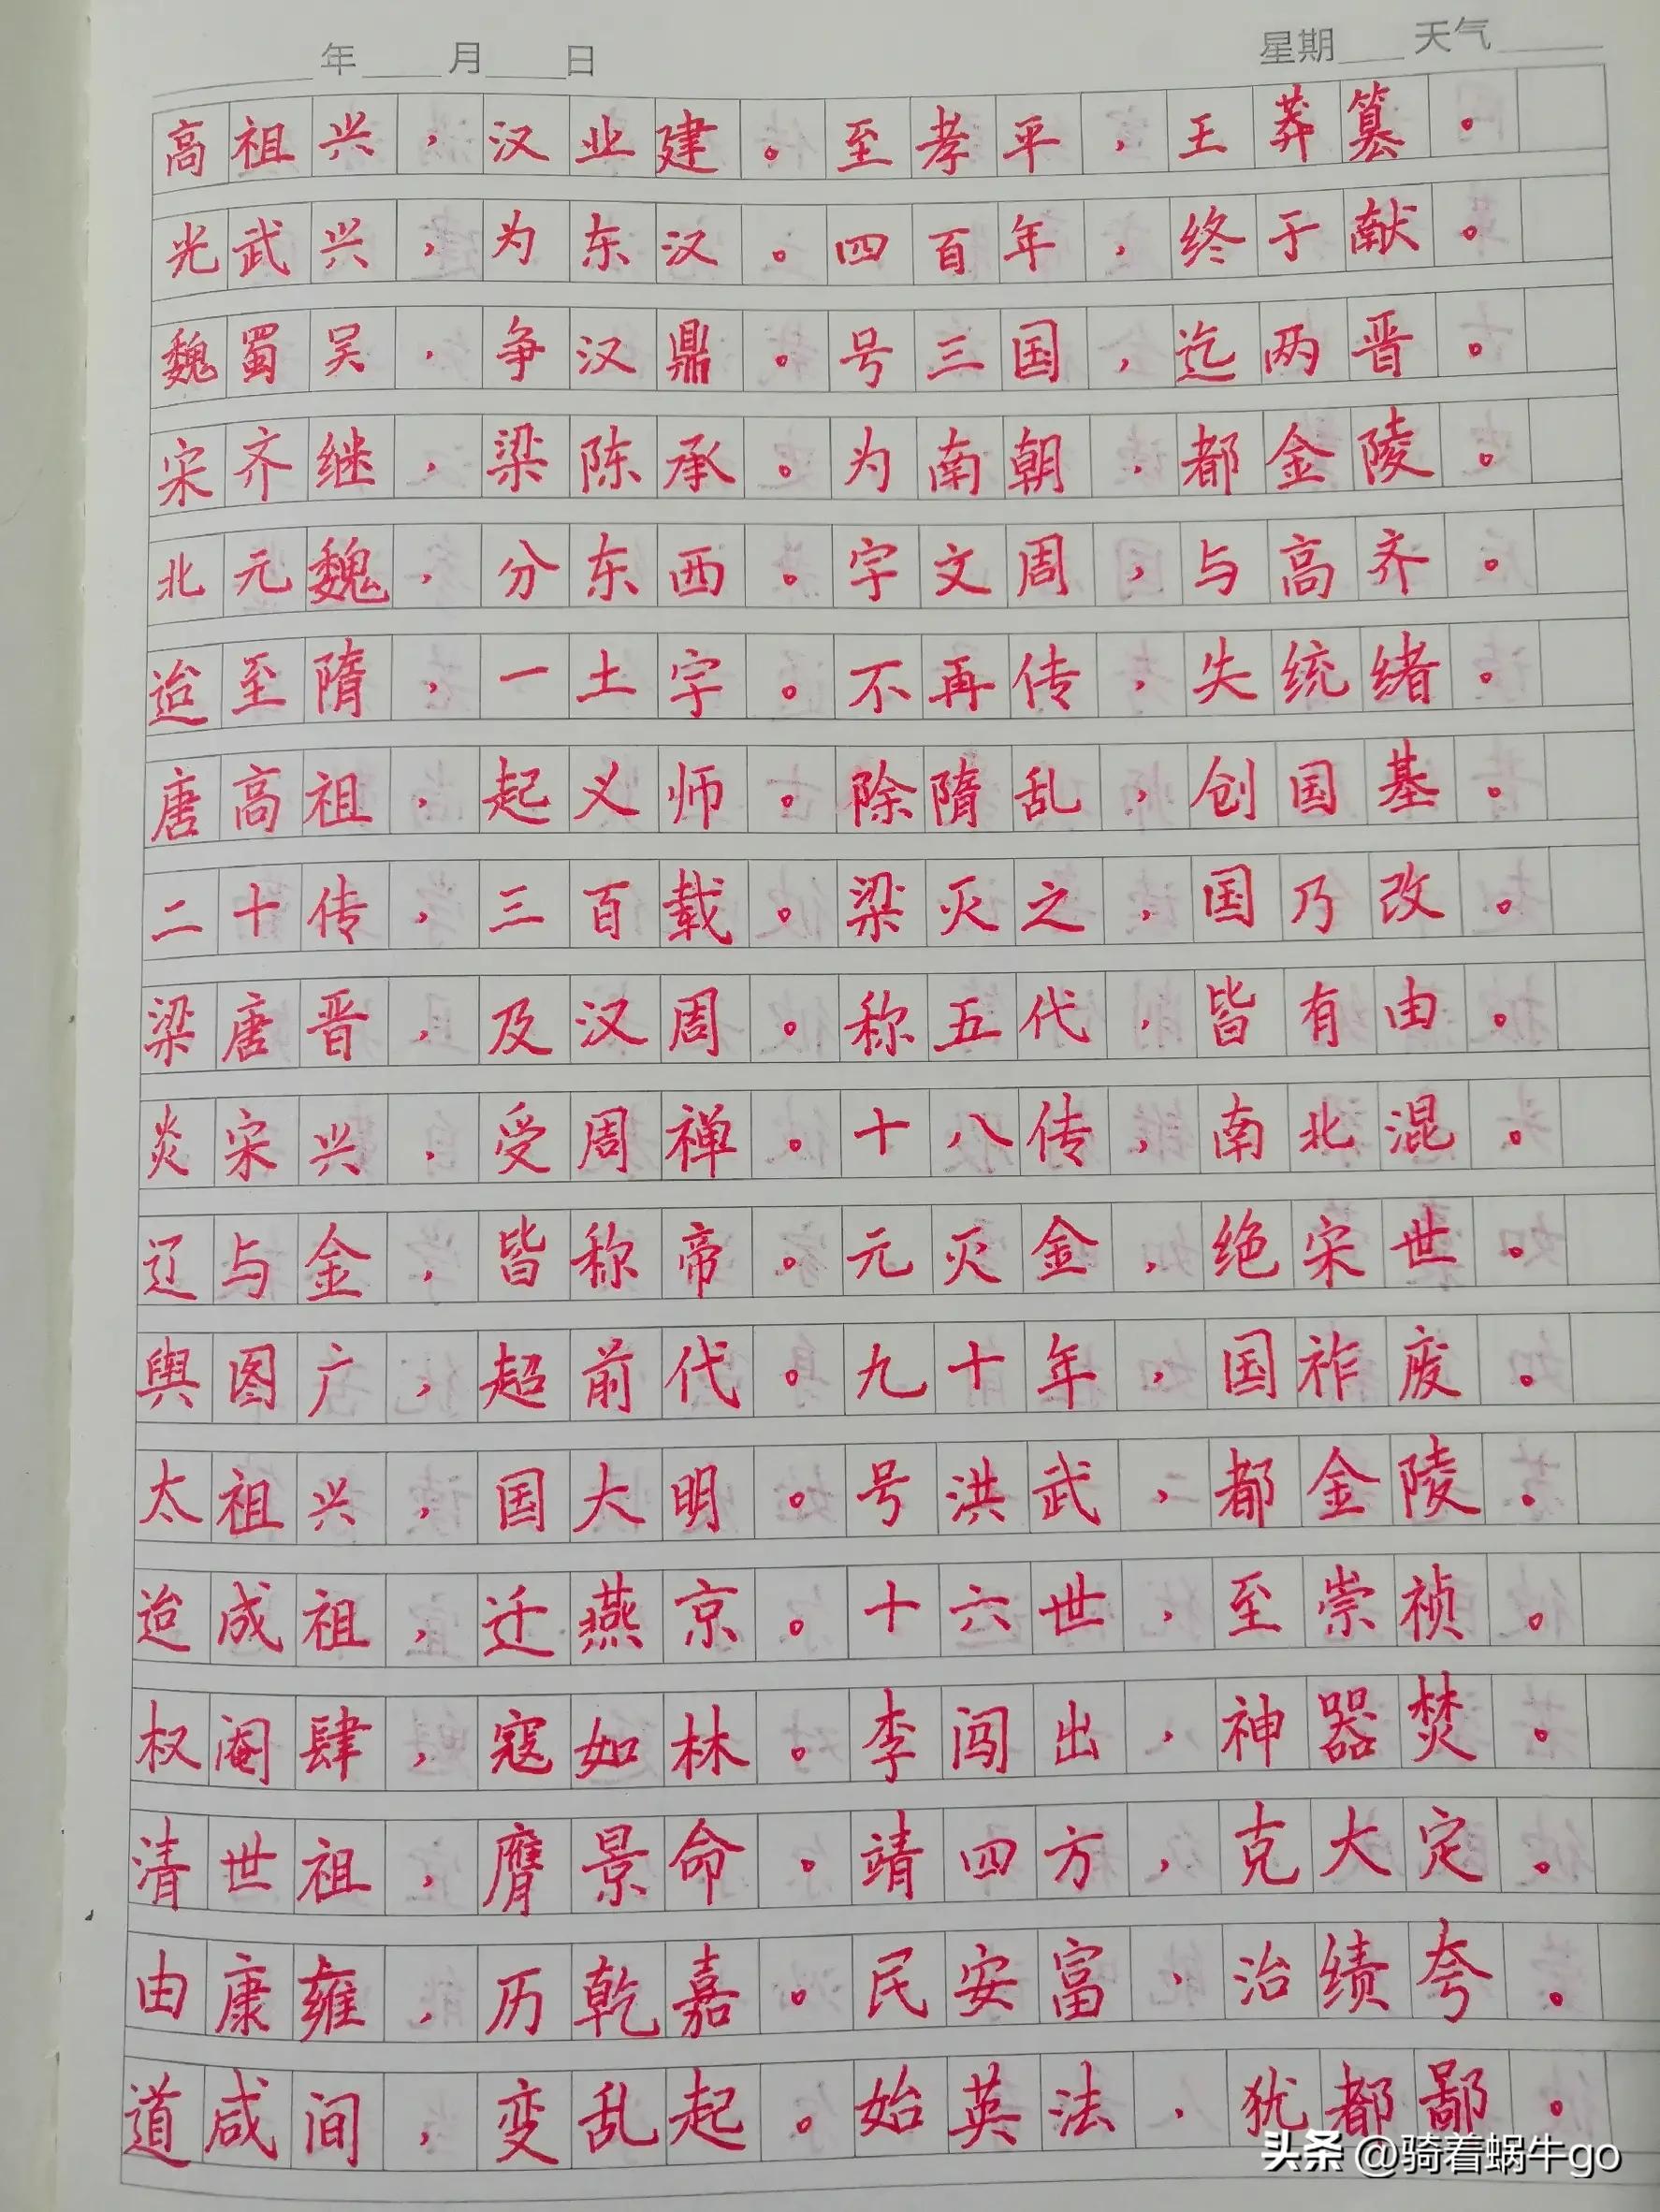 年 月 日 星期 天气
高祖兴，汉业建。至孝平，王莽篡。
光武兴，为东汉。四百年，终于献。
魏蜀吴，争汉鼎。号三国，迄两晋。
宋齐继，梁陈承。为南朝，都金陵。
北元魏，分东西。宇文周，与高齐。
迨至隋，一土宇。不再传，失统绪。
唐高祖，起义师。除隋乱，创国基。
二十传，三百载。梁灭之，国乃改。
梁唐晋，及汉周。称五代，皆有由。
炎宋兴，受周禅。十八传，南北混。
辽与金，皆称帝。元灭金，绝宋世。
舆图广，超前代。九十年，国祚废。
太祖兴，国大明。号洪武，都金陵。
迨成祖，迁燕京。十六世，至崇祯。
权阉肆，寇如林。李闯出，神器焚。
清世祖，膺景命。靖四方，克大定。
由康雍，历乾嘉。民安富，治绩夸。
道咸间，变乱起。始英法，犹都鄙。
头条 @骑着蜗牛go